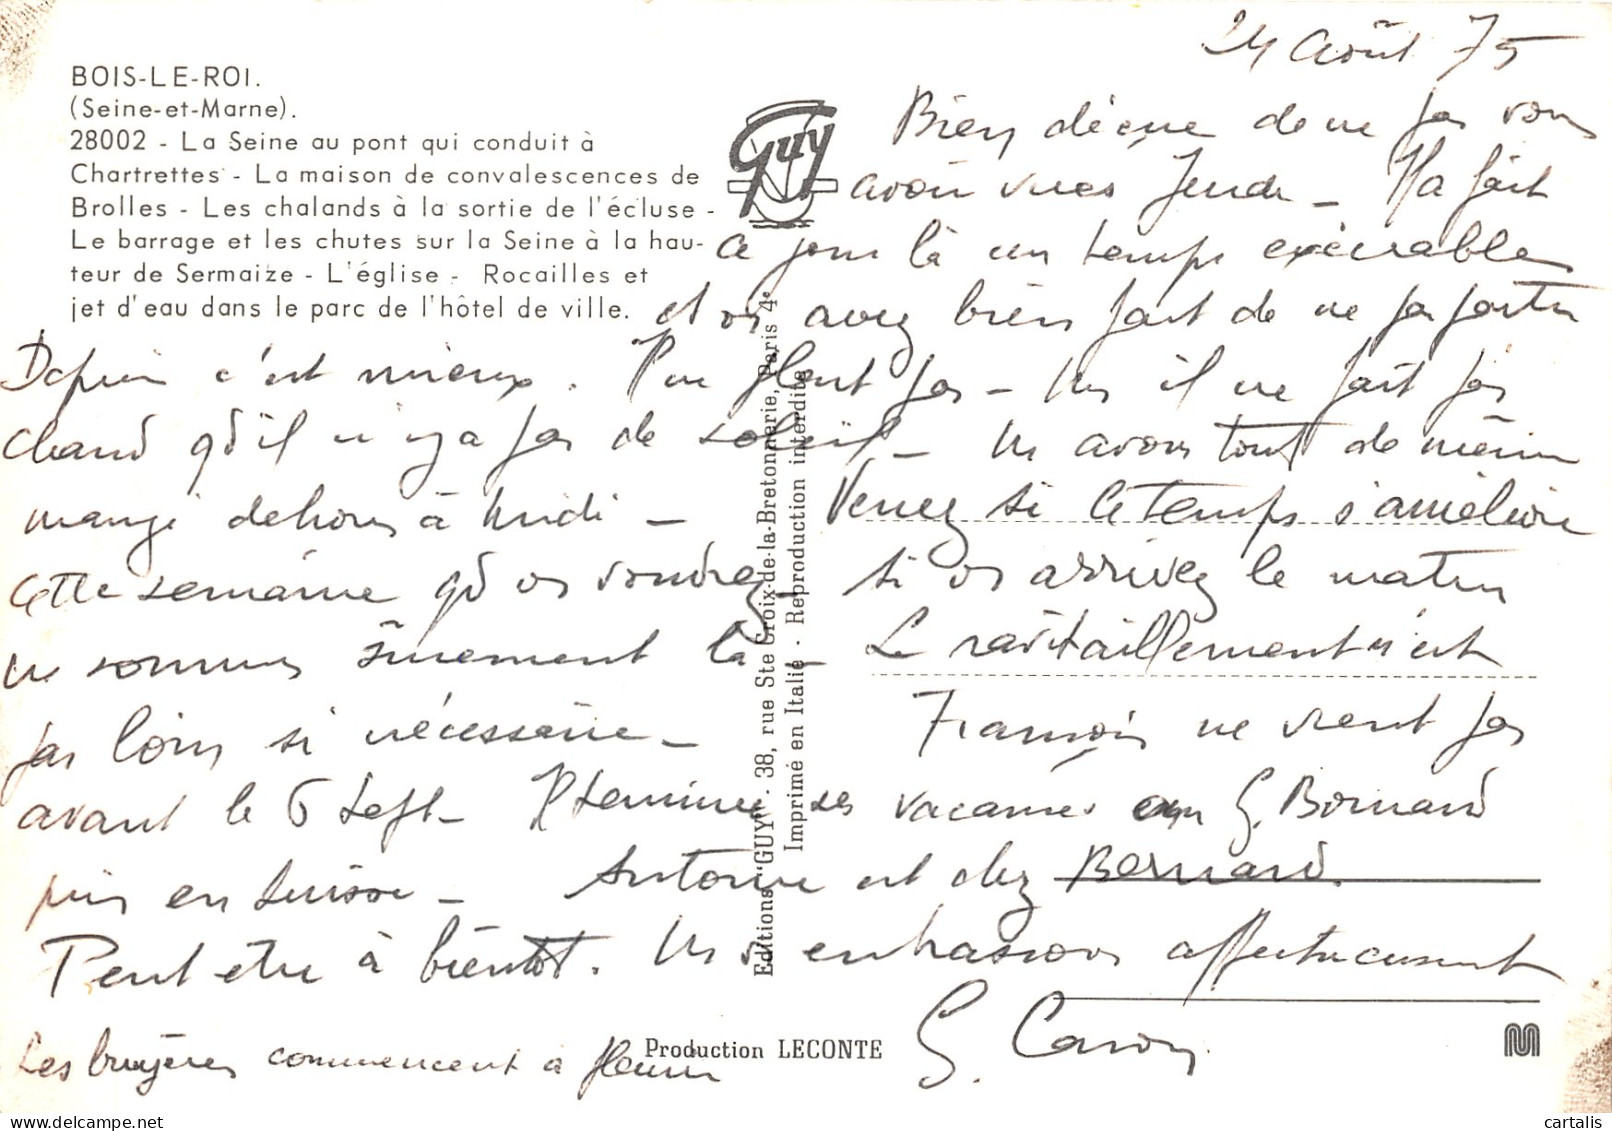 24 Août 75
BOIS-LE-ROI.
(Seine-et-Marne).
28002 - La Seine au pont qui conduit à
Chartrettes - La maison de convalescences de
Brolles - Les chalands à la sortie de l'écluse -
Le barrage et les chutes sur la Seine à la hau-
teur de Sermaize - L'église - Rocailles et
jet d'eau dans le parc de l'hôtel de ville.
Guy
Bien déçue de ne pas vous
avoir vues Jeudi - Il a fait
ce jour là un temps exécrable
et vs avez bien fait de ne pas sortir
Depuis c'est mieux. Il ne pleut pas - Mais il ne fait pas
chaud qd il n'y a pas de soleil - Ns avons tout de même
mangé dehors à midi - Venez si le temps s'améliore
cette semaine qd vs voudrez - Si vs arrivez le matin
ns sommes sûrement là - Le ravitaillement n'est
pas loin si nécessaire - François ne vient pas
avant le 6 Sept - Il termine ses vacances en G. Bernard
puis en Suisse - Antoine est chez Bernard.
Peut être à bientôt. Ns vs embrassons affectueusement
G. Caron
Les bruyères commencent à fleurir
Editions "GUY" - 38, rue Ste Croix-de-la-Bretonnerie, Paris 4e
Imprimé en Italie - Reproduction interdite
Production LECONTE
M
cartalis
www.delcampe.net